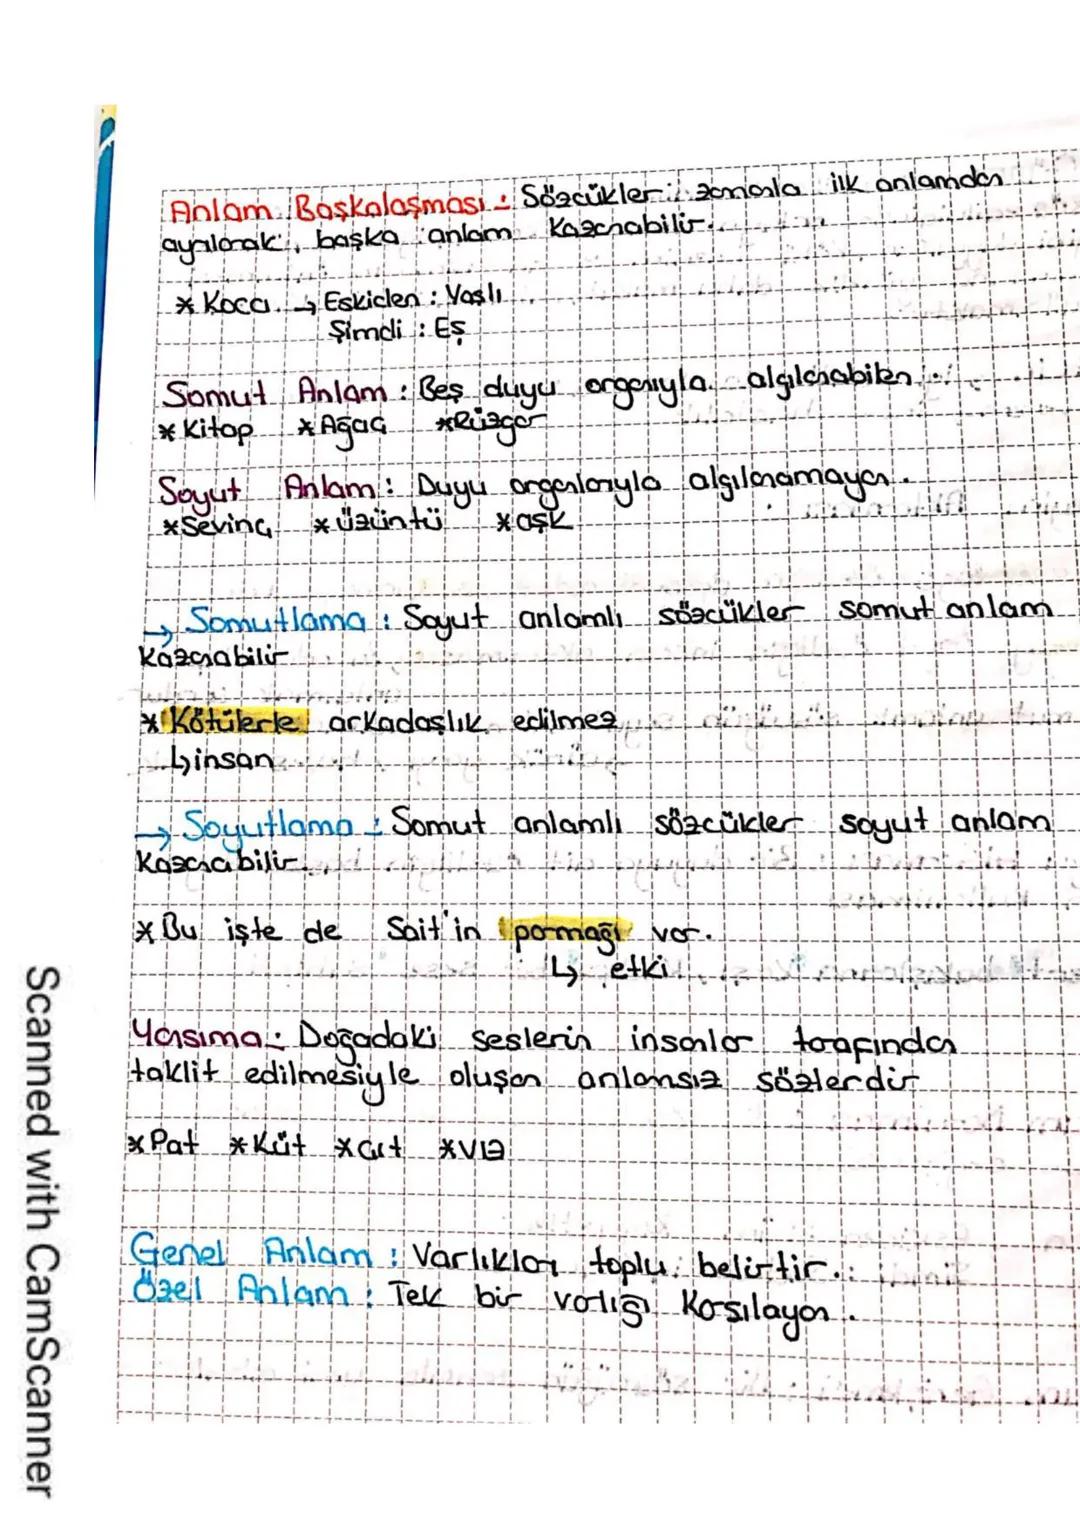 Anlam Başkalaşması : Sözcükler zamanla ilk anlamdan
ayrılarak, başka anlam kazanabilir.
* Koca → Eskiden : Yaşlı
Şimdi : Eş
Somut Anlam : Beş duyu organıyla algılanabilen.
* Kitap * Ağaç * Rüzgar
Soyut Anlam : Duyu organlarıyla algılanamayan.
* Sevinç * Üzüntü * aşk
→ Somutlama : Soyut anlamlı sözcükler somut anlam
kazanabilir
* Kötülerle arkadaşlık edilmez
↳ insan
→ Soyutlama : Somut anlamlı sözcükler soyut anlam
kazanabilir.
* Bu işte de Sait'in parmağı var.
↳ etki
Yansıma : Doğadaki seslerin insanlar tarafından
taklit edilmesiyle oluşan anlamsız sözlerdir
* Pat * Küt * Çıt * Vız
Genel Anlam : Varlıkları toplu belirtir.
Özel Anlam : Tek bir varlığı karşılayan.
Scanned with CamScanner